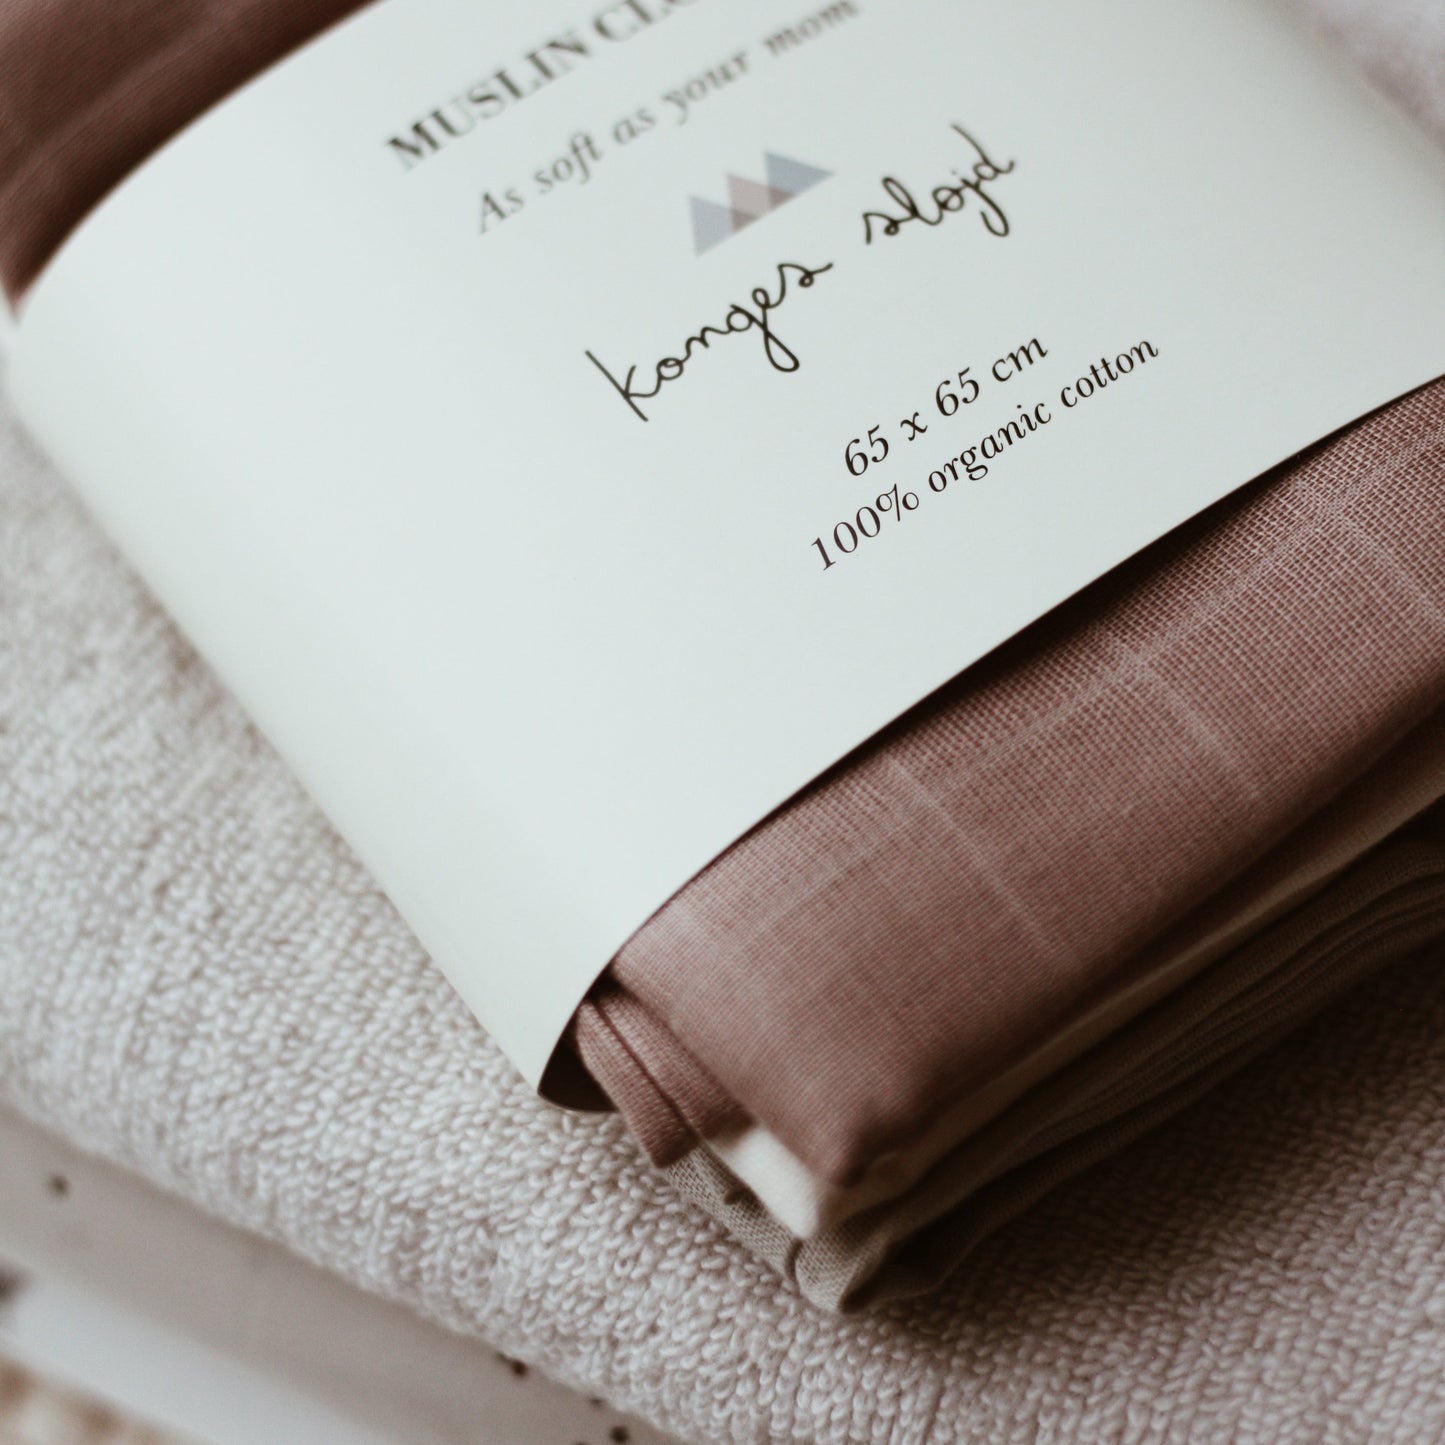 MUSLIN
As soft as your mom
konges sløjd
65 x 65 cm
100% organic cotton